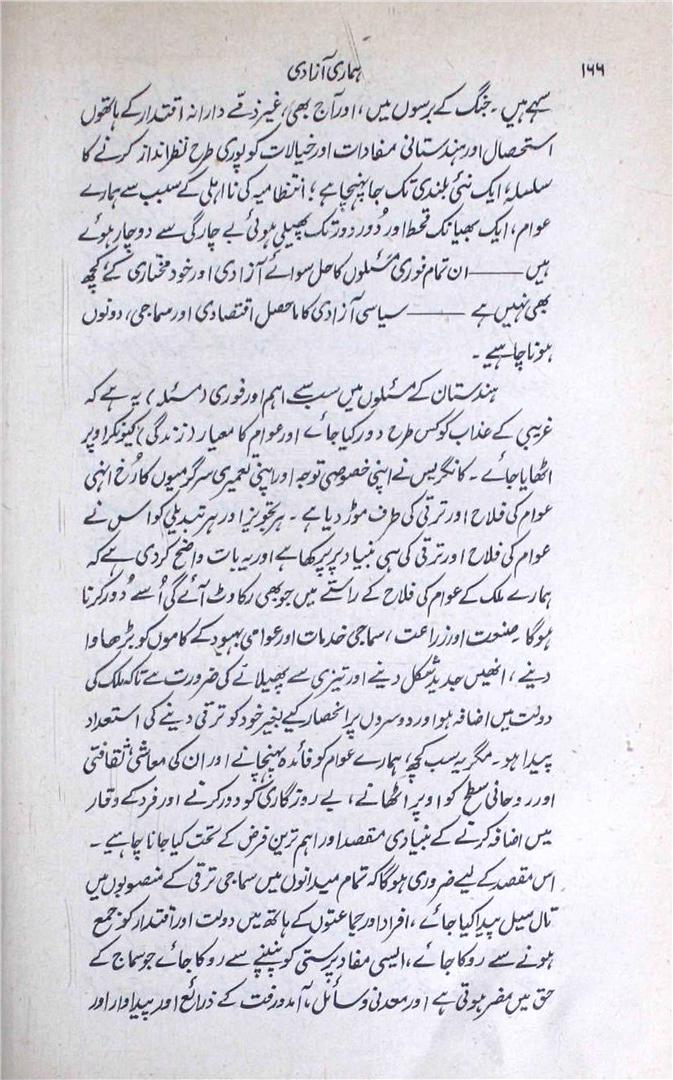 ۱۶۶
ہماری آزادی
سہے ہیں۔ جنگ کے برسوں میں، اور آج بھی، غیر ذمّے دارانہ اقتدار کے ہاتھوں
استحصال اور ہندستانی مفادات اور خیالات کو پوری طرح نظر انداز کرنے کا
سلسلہ، ایک نئی بلندی تک جا پہنچا ہے؛ انتظامیہ کی نا اہلی کے سبب سے ہمارے
عوام، ایک بھیانک قحط اور دُور دور تک پھیلی ہوئی بے چارگی سے دوچار ہوئے
ہیں ــــــ ان تمام فوری مسئلوں کا حل سوائے آزادی اور خود مختاری کے، کچھ
بھی نہیں ہے ــــــ سیاسی آزادی کا ماحصل اقتصادی اور سماجی، دونوں
ہونا چاہیے۔
ہندستان کے مسئلوں میں سب سے اہم اور فوری (مسئلہ) یہ ہے کہ
غریبی کے عذاب کو کس طرح دور کیا جائے اور عوام کا معیار (زندگی) کیونکر اوپر
اٹھایا جائے۔ کانگریس نے اپنی خصوصی توجہ اور اپنی تعمیری سرگرمیوں کا رُخ انہی
عوام کی فلاح اور ترقی کی طرف موڑ دیا ہے۔ ہر تجویز اور ہر تبدیلی کو اس نے
عوام کی فلاح اور ترقی کی ہی بنیاد پر پرکھا ہے اور یہ بات واضح کر دی ہے کہ
ہمارے ملک کے عوام کی فلاح کے راستے میں جو بھی رکاوٹ آئے گی اُسے دُور کرنا
ہوگا۔ صنعت اور زراعت، سماجی خدمات اور عوامی بہبود کے کاموں کو بڑھاوا
دینے، انھیں جدید شکل دینے اور تیزی سے پھیلانے کی ضرورت ہے تاکہ ملک کی
دولت میں اضافہ ہو اور دوسروں پر انحصار کیے بغیر خود کو ترقی دینے کی استعداد
پیدا ہو۔ مگر یہ سب کچھ، ہمارے عوام کو فائدہ پہنچانے اور ان کی معاشی، ثقافتی
اور روحانی سطح کو اوپر اٹھانے، بے روزگاری کو دور کرنے اور فرد کے وقار
میں اضافہ کرنے کے بنیادی مقصد اور اہم ترین فرض کے تحت کیا جانا چاہیے۔
اس مقصد کے لیے ضروری ہوگا کہ تمام میدانوں میں سماجی ترقی کے منصوبوں میں
تال میل پیدا کیا جائے، افراد اور جماعتوں کے ہاتھ میں دولت اور اقتدار کو جمع
ہونے سے روکا جائے، ایسی مفاد پرستی کو پنپنے سے روکا جائے جو سماج کے
حق میں مضر ہوتی ہے اور معدنی وسائل، آمدورفت کے ذرائع اور پیداوار اور